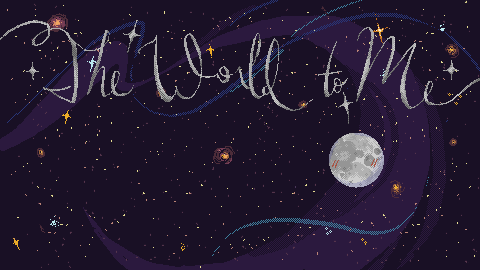 The World to Me